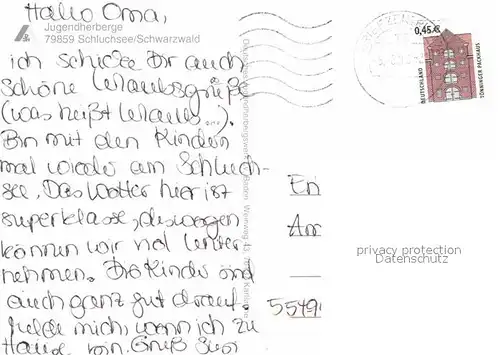 Hallo Oma,
Jugendherberge
79859 Schluchsee/Schwarzwald
ich schicke Dir auch
schöne Urlaubsgrüße
(was heißt Urlaub...).
Bin mit den Kindern
mal wieder am Schluch-
see. Das Wetter hier ist
superklasse, deswegen
können wir viel unter-
nehmen. Die Kinder sind
auch ganz gut drauf.
melde mich, wenn ich zu
Hause bin. Gruß Susi
0,45 €
DEUTSCHLAND
TÖNNINGER PACKHAUS
En
Am
5549
privacy protection
Datenschutz